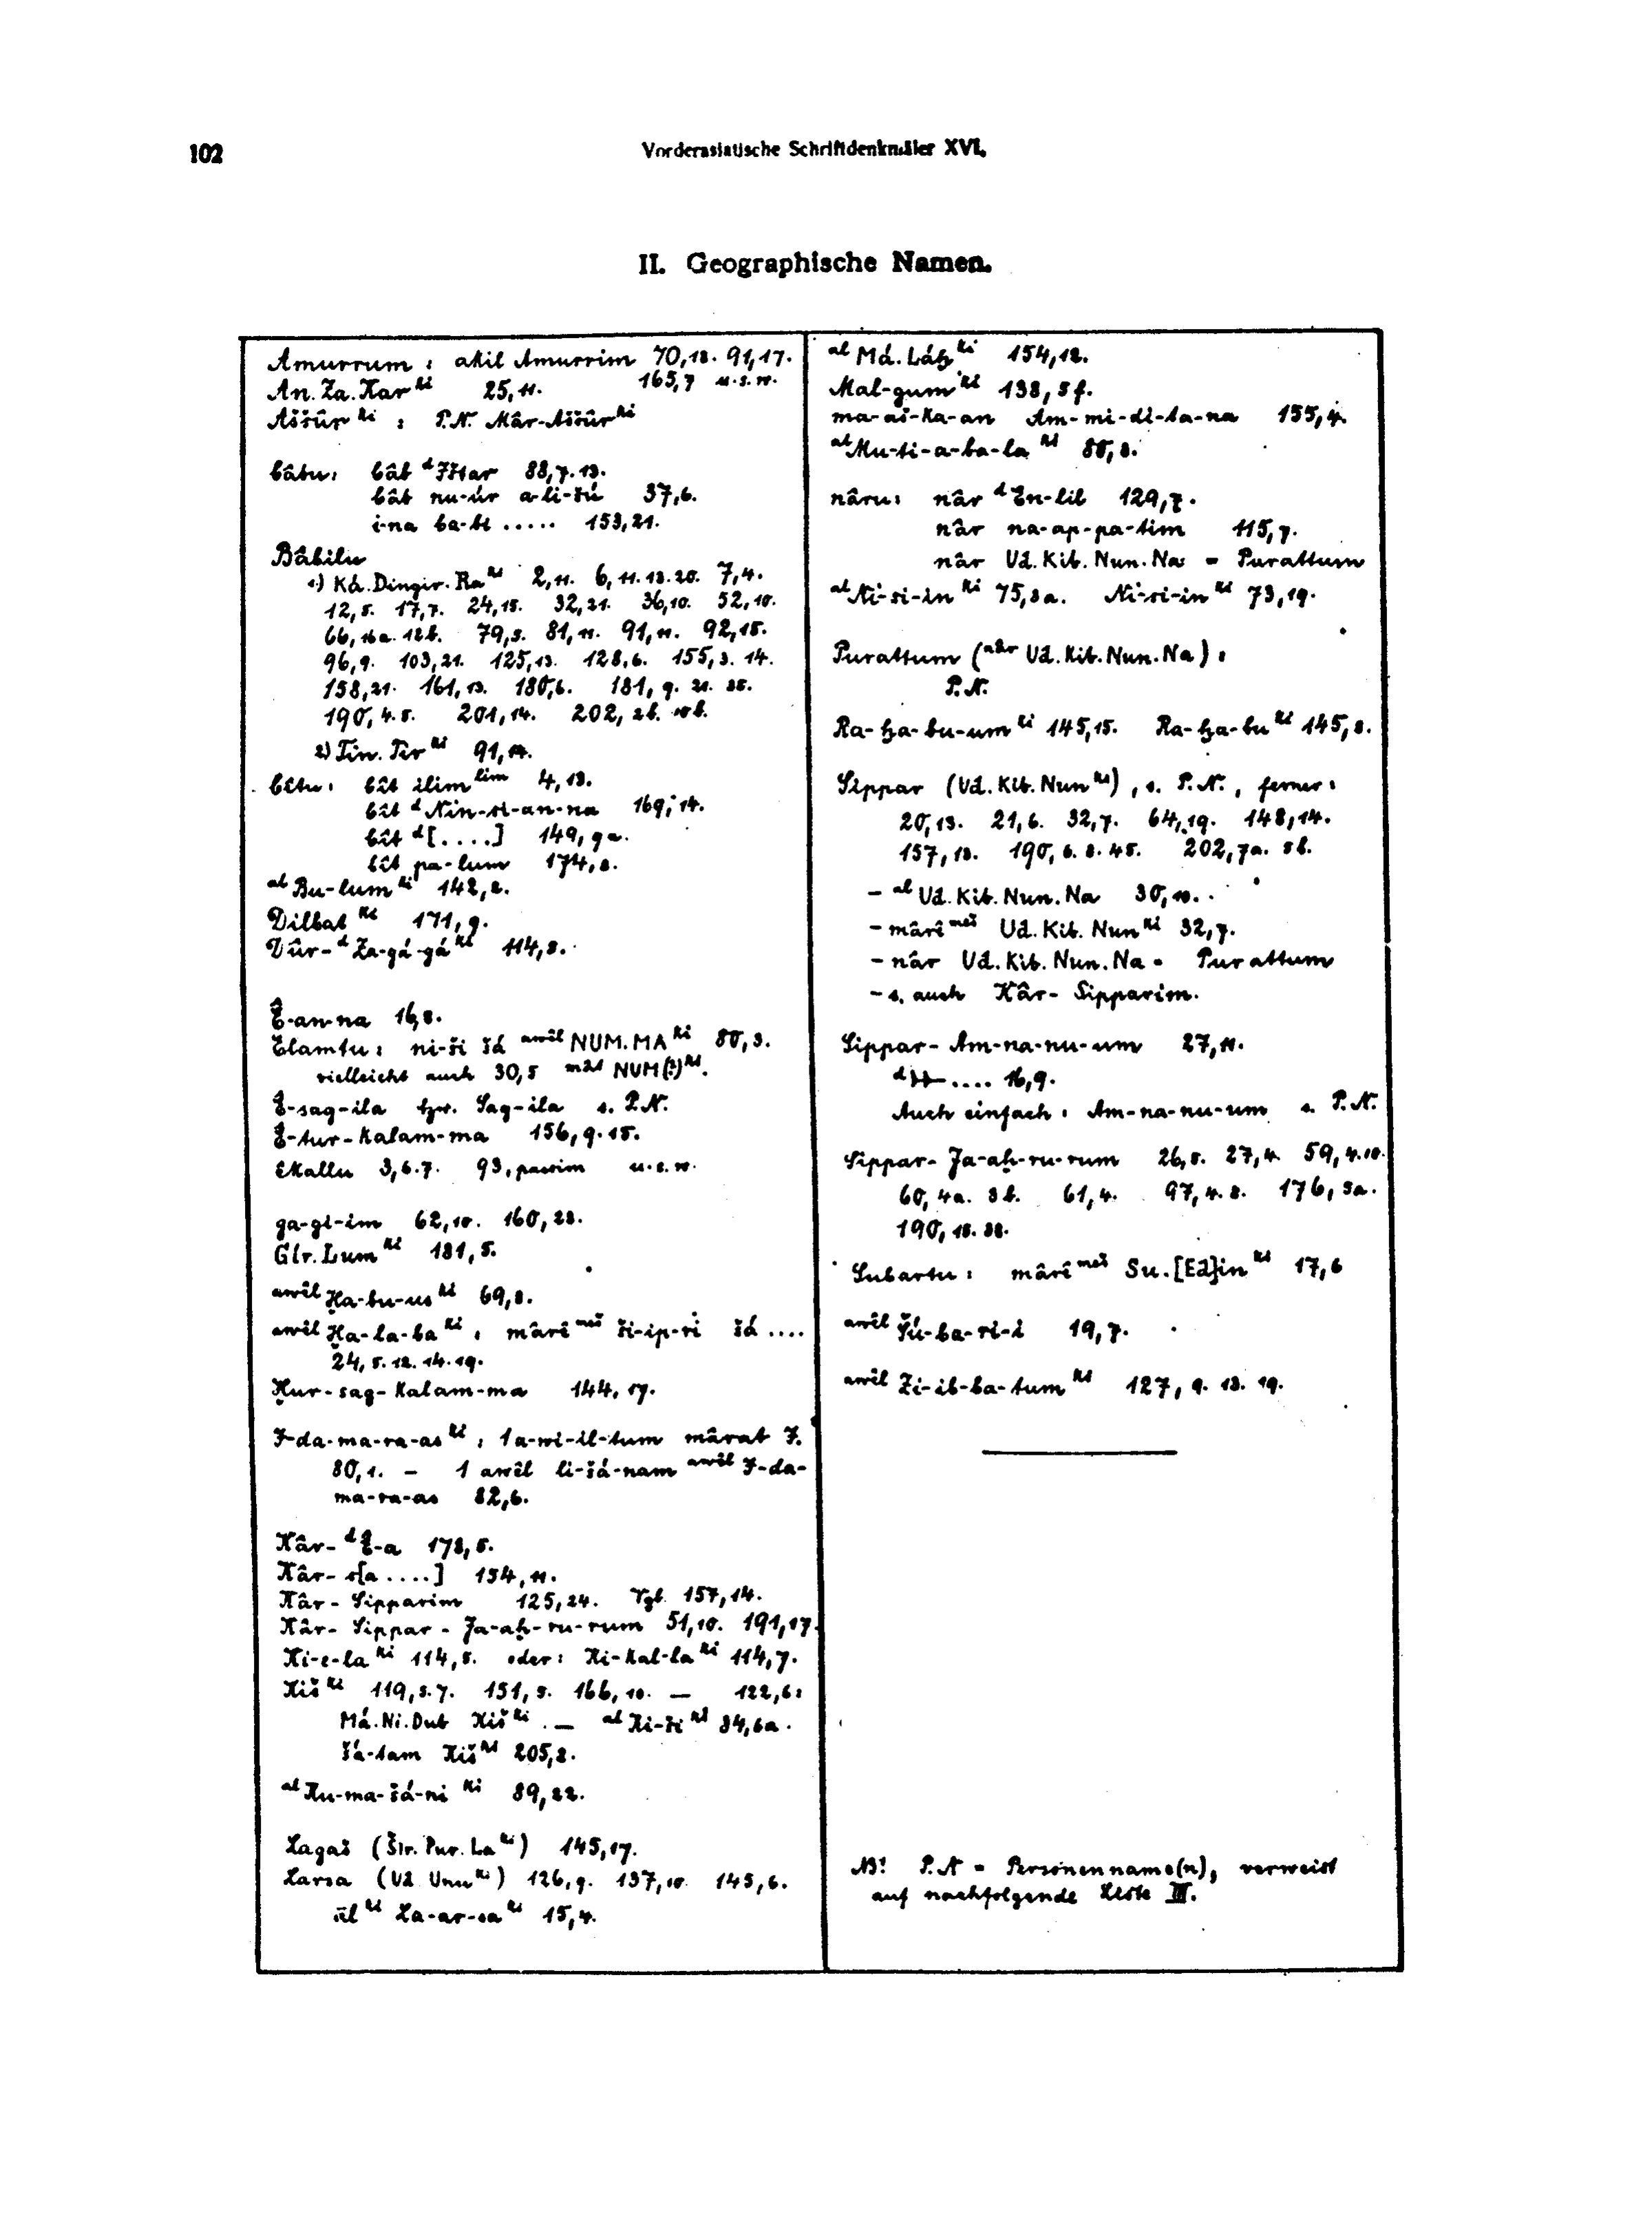 102
Vorderasiatische Schriftdenkmäler XVI.
II. Geographische Namen.
Amurrum : akil Amurrim 70,18. 91,17.
An. Za. Kar ki 25,11. 165,7 u.s.w.
Aššûr ki : P.N. Mâr-Aššûr ki
bâbu: bâb d Ištar 88,7.13.
bâb nu-úr a-li-šú 37,6.
i-na ba-bi ..... 153,21.
Bâbilu
1) Ká.Dingir.Ra ki 2,11. 6,11.13.20. 7,4.
12,5. 17,7. 24,15. 32,21. 36,10. 52,10.
66,16a. 12b. 79,5. 81,11. 91,11. 92,15.
96,9. 103,21. 125,13. 128,6. 155,3. 14.
158,21. 161,13. 180,6. 181,9. 21. 25.
190,4.5. 201,14. 202,2b. 10b.
2) Tin. Tir ki 91,14.
bîtu: bît ilim lim 4,13.
bît d Nin-si-an-na 169,14.
bît d [....] 149,9a.
bît pa-lum 174,8.
al Bu-lum ki 142,2.
Dilbat ki 171,9.
Dûr- d Za-gá-gá ki 114,8.
Ê-an-na 16,8.
Elamtu: ni-ši šá awîl NUM.MA ki 80,3.
vielleicht auch 30,5 mât NUM(?) ki.
Ê-sag-ila bzw. Sag-ila s. P.N.
Ê-tur-kalam-ma 156,9.15.
Ekallu 3,6.7. 93, passim u.s.w.
ga-gi-im 62,10. 160,23.
Gir.Lum ki 181,5.
awîl Ḫa-bu-us ki 69,8.
awîl Ḫa-la-ba ki : mârê meš ši-ip-ri šá ....
24,5.12.14.19.
Ḫur-sag-kalam-ma 144,17.
I-da-ma-ra-as ki : 1 a-wi-il-tum mârat I.
80,1. – 1 awêl li-šá-nam awîl I-da-
ma-ra-as 82,6.
Kâr- d Ê-a 178,5.
Kâr-s[a ....] 154,11.
Kâr-Sipparim 125,24. Vgl. 157,14.
Kâr-Sippar-Ja-aḫ-ru-rum 51,10. 191,17.
Ki-e-la ki 114,5. oder: Ki-kal-la ki 114,7.
Kiš ki 119,5.7. 151,5. 166,10. – 122,6:
Má.Ni.Dub Kiš ki. – al Ki-ši ki 84,6a.
šá-tam Kiš ki 205,2.
al Ku-ma-šá-ni ki 89,22.
Lagaš (Šir.Pur.La ki) 145,17.
Larsa (Ud Unu ki) 126,9. 137,10 145,6.
âl ki La-ar-sa ki 15,4.
al Má.Láḫ ki 154,12.
Mal-gum ki 138,5f.
ma-aš-ka-an Am-mi-di-ta-na 155,4.
al Mu-ti-a-ba-la ki 80,8.
nâru: nâr d En-lil 129,7.
nâr na-ap-pa-tim 115,7.
nâr Ud.Kib.Nun.Na = Purattum
al Ni-si-in ki 75,3a. Ni-si-in ki 73,19.
Purattum (nâr Ud.Kib.Nun.Na):
P.N.
Ra-ḫa-bu-um ki 145,15. Ra-ḫa-bu ki 145,8.
Sippar (Ud.Kib.Nun ki), s. P.N., ferner:
20,13. 21,6. 32,7. 64,19. 148,14.
157,13. 190,6.8.45. 202,7a. 5b.
– al Ud.Kib.Nun.Na 30,10.
– mârê meš Ud.Kib.Nun ki 32,7.
– nâr Ud.Kib.Nun.Na = Purattum
– s. auch Kâr-Sipparim.
Sippar-Am-na-nu-um 27,11.
d .... 16,9.
Auch einfach: Am-na-nu-um s. P.N.
Sippar-Ja-aḫ-ru-rum 26,5. 27,4. 59,4.10.
60,4a. 3b. 61,4. 97,4.8. 176,5a.
190,18.38.
Subartu: mârê meš Su.[Ed]in ki 17,6
awîl Šú-ba-ri-i 19,7.
awîl Zi-ib-ba-tum ki 127,9.13.19.
NB! P.N = Personenname(n), verweist
auf nachfolgende Liste III.